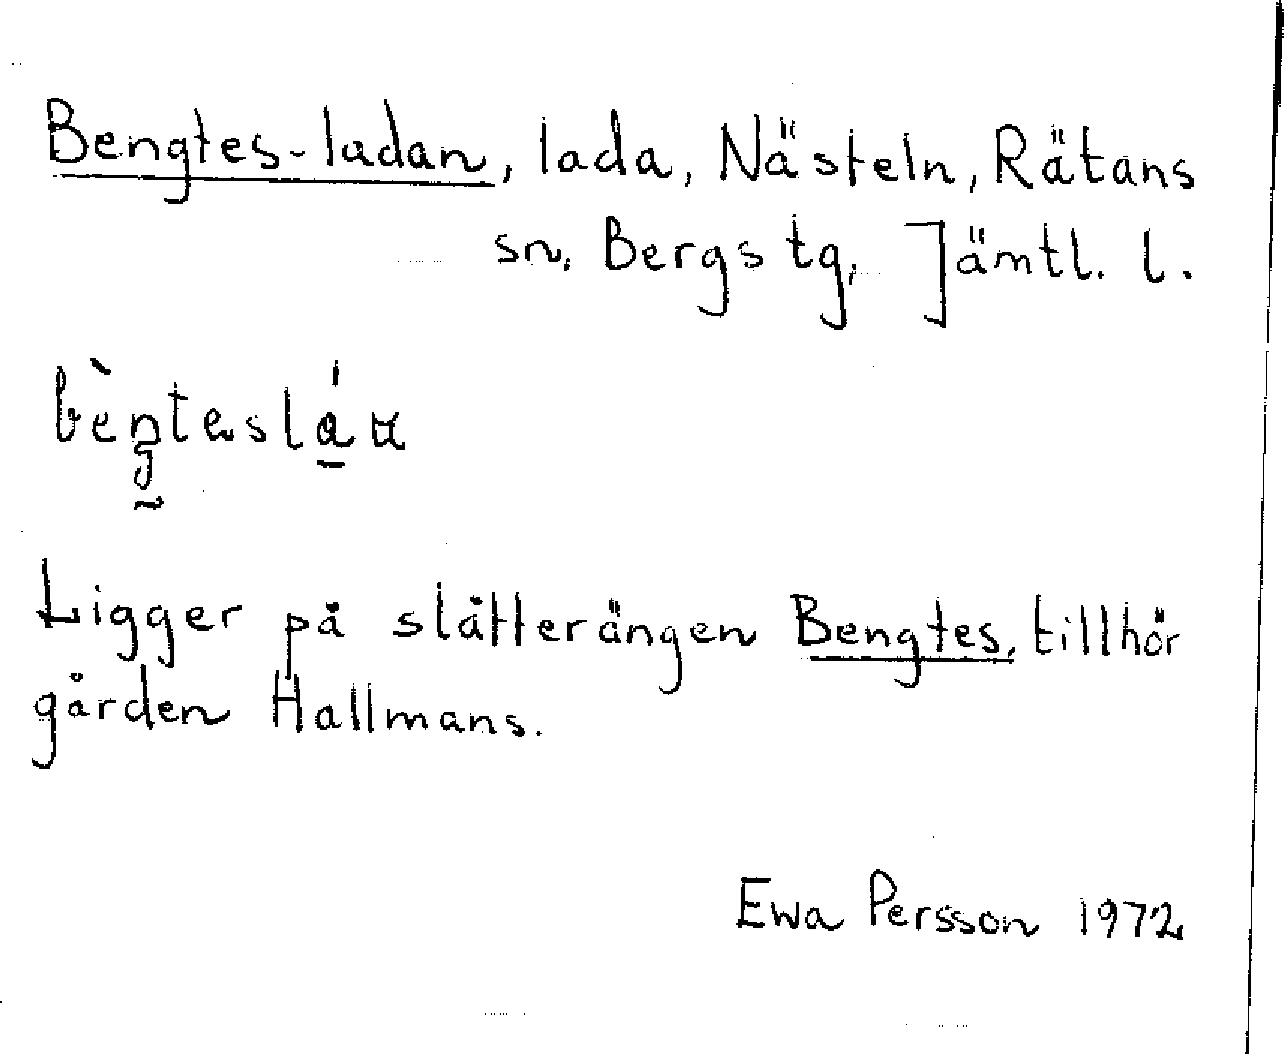 Bengtes-ladan, lada, Nästeln, Rätans
sn, Bergs tg, Jämtl. l.
Ligger på slåtterängen Bengtes, tillhör
gården Hallmans.
Ewa Persson 1972